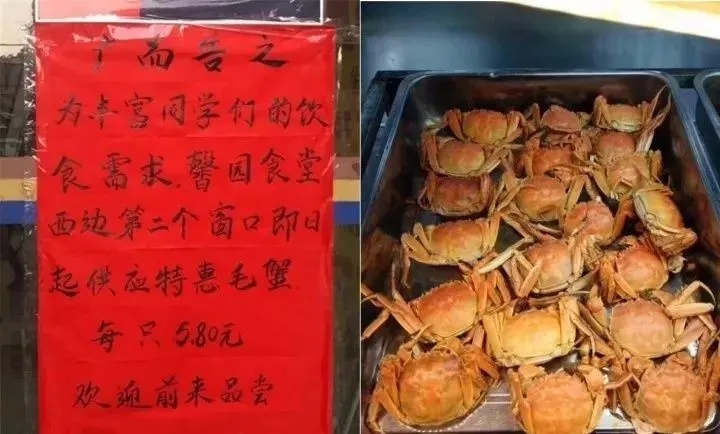 广而告之
为丰富同学们的饮
食需求,馨园食堂
西边第二个窗口即日
起供应特惠毛蟹
每只5.80元
欢迎前来品尝